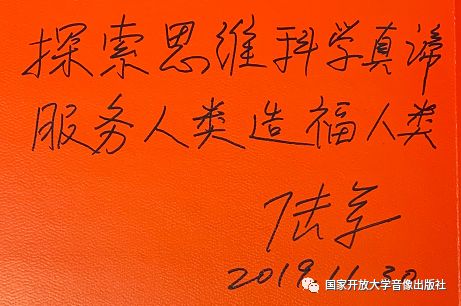 探索思维科学真谛
服务人类造福人类
陆军
2019.11.30
国家开放大学音像出版社